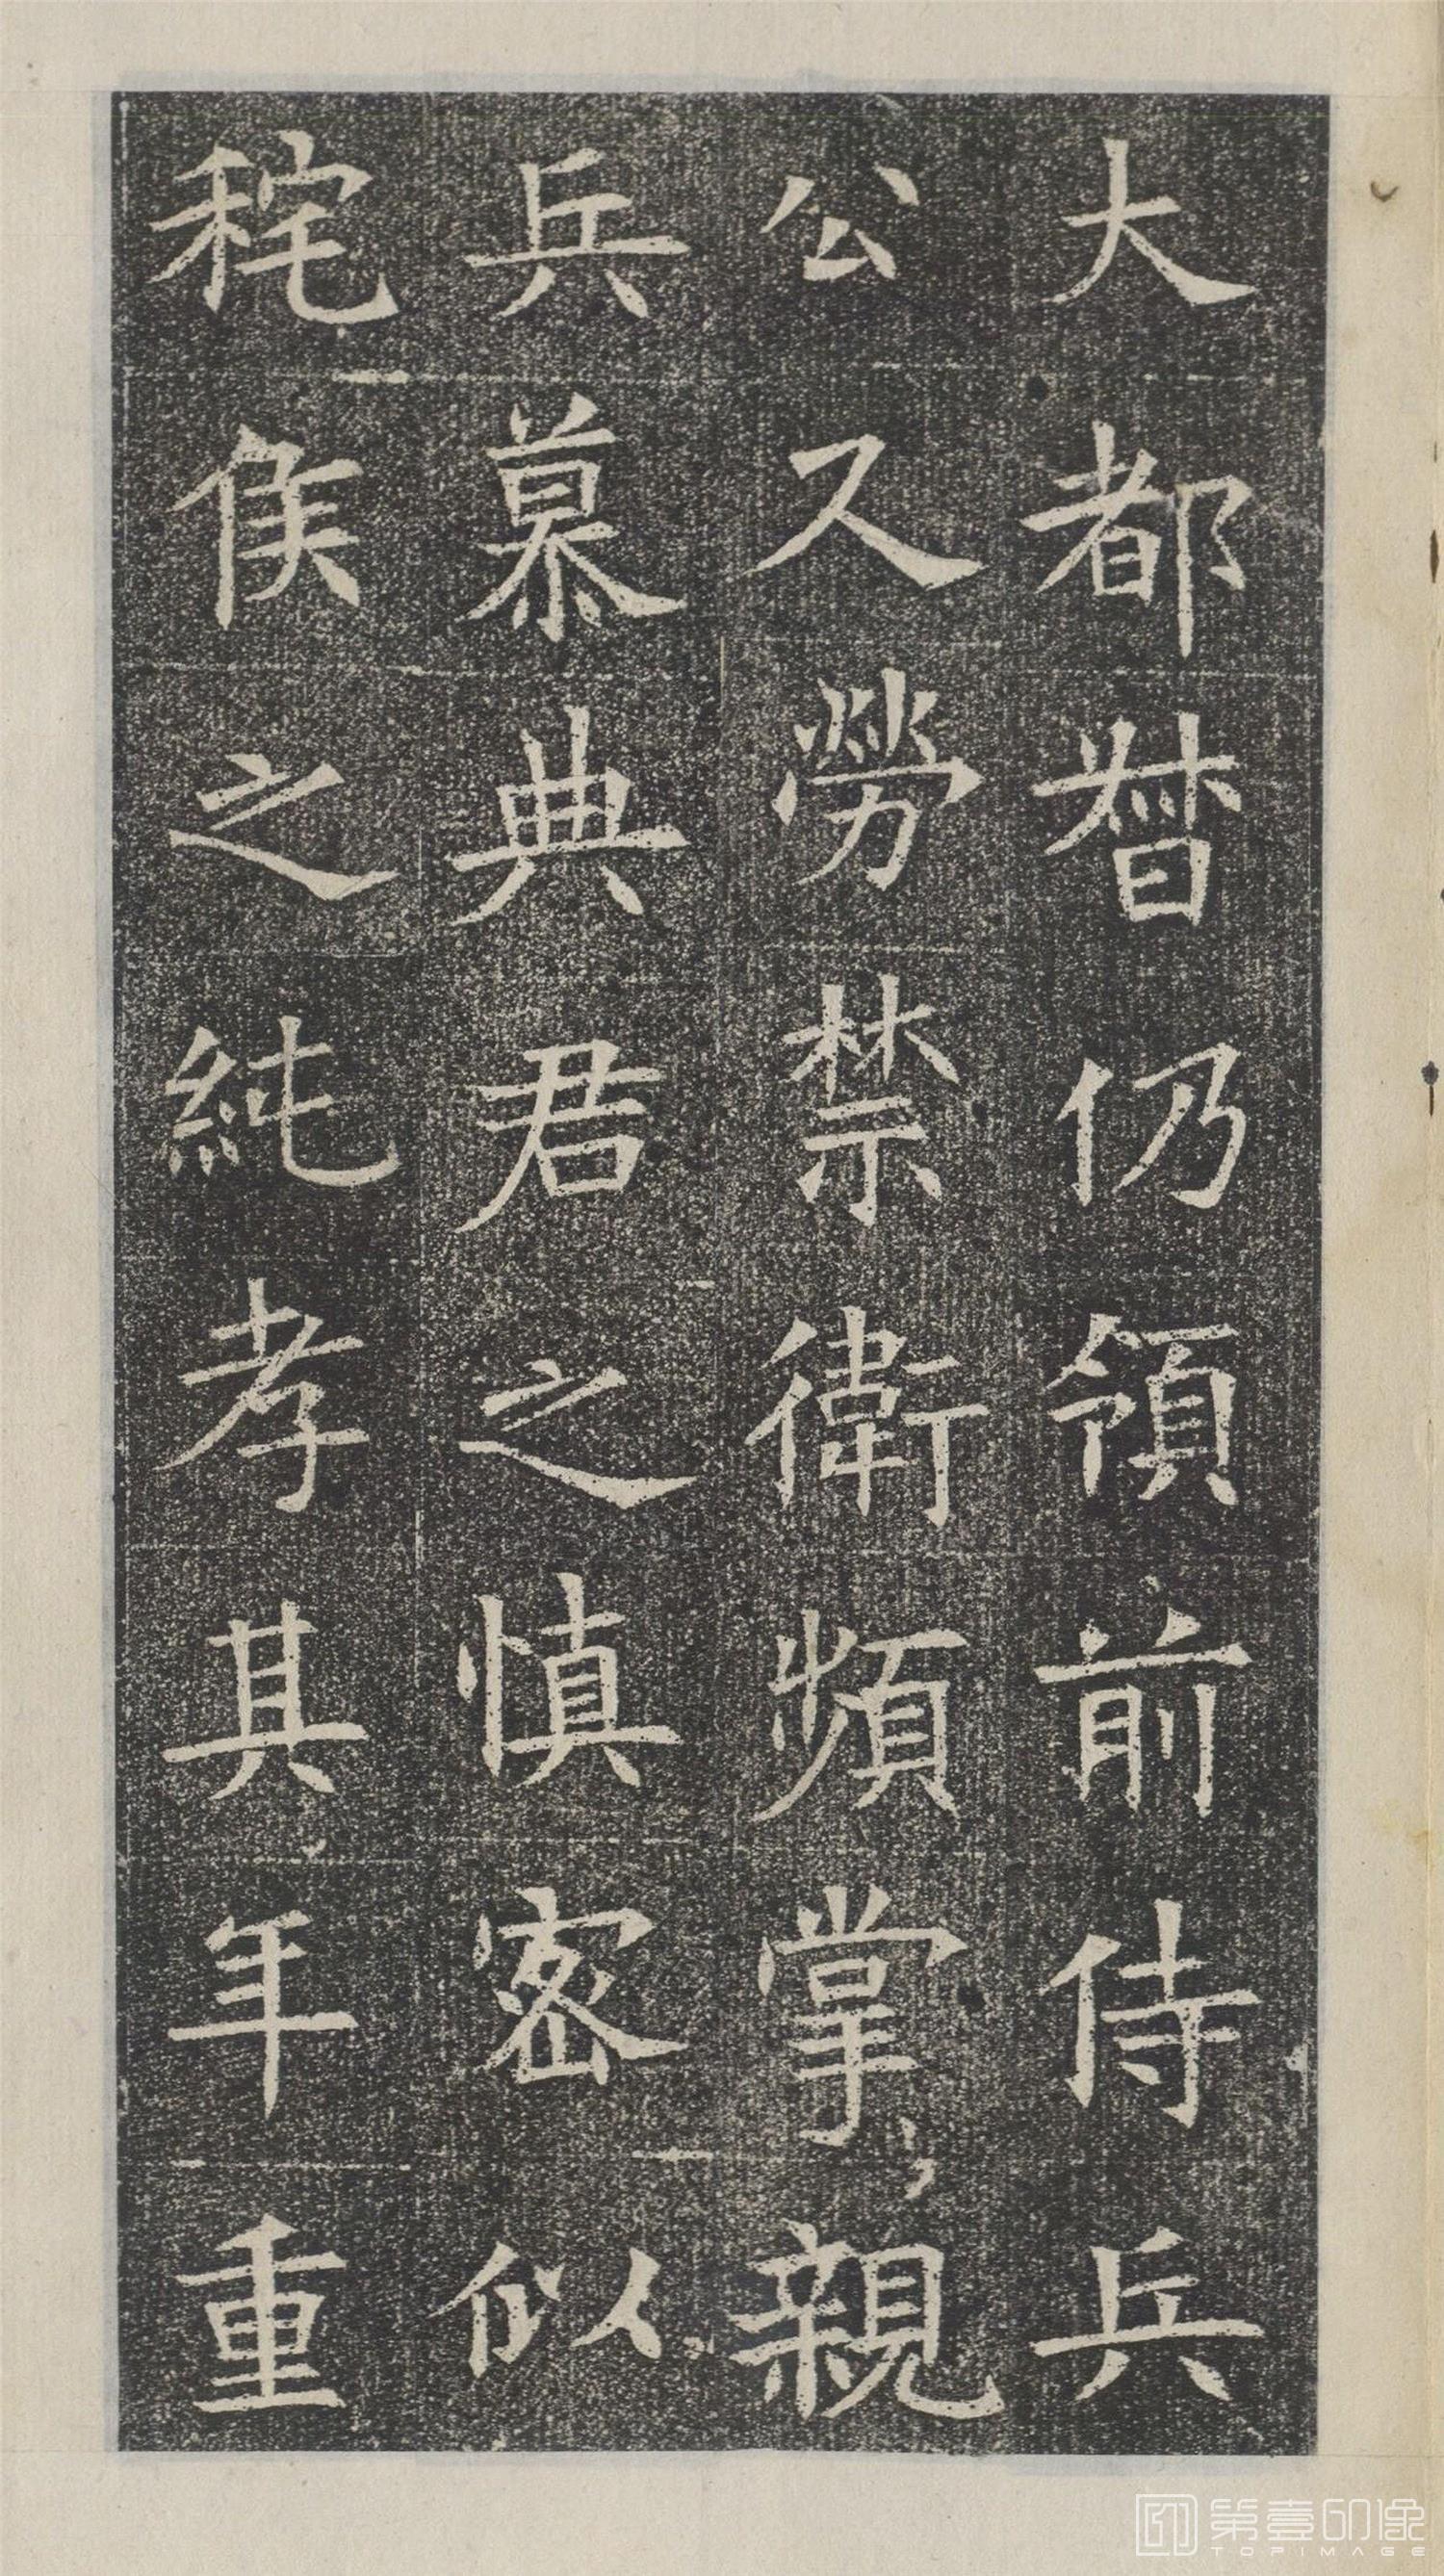 大都督仍領前侍兵
公久勞禁衛頻掌親
兵慕典君之慎密似
秺侯之純孝其年重
第壹印像
TOPIMAGE